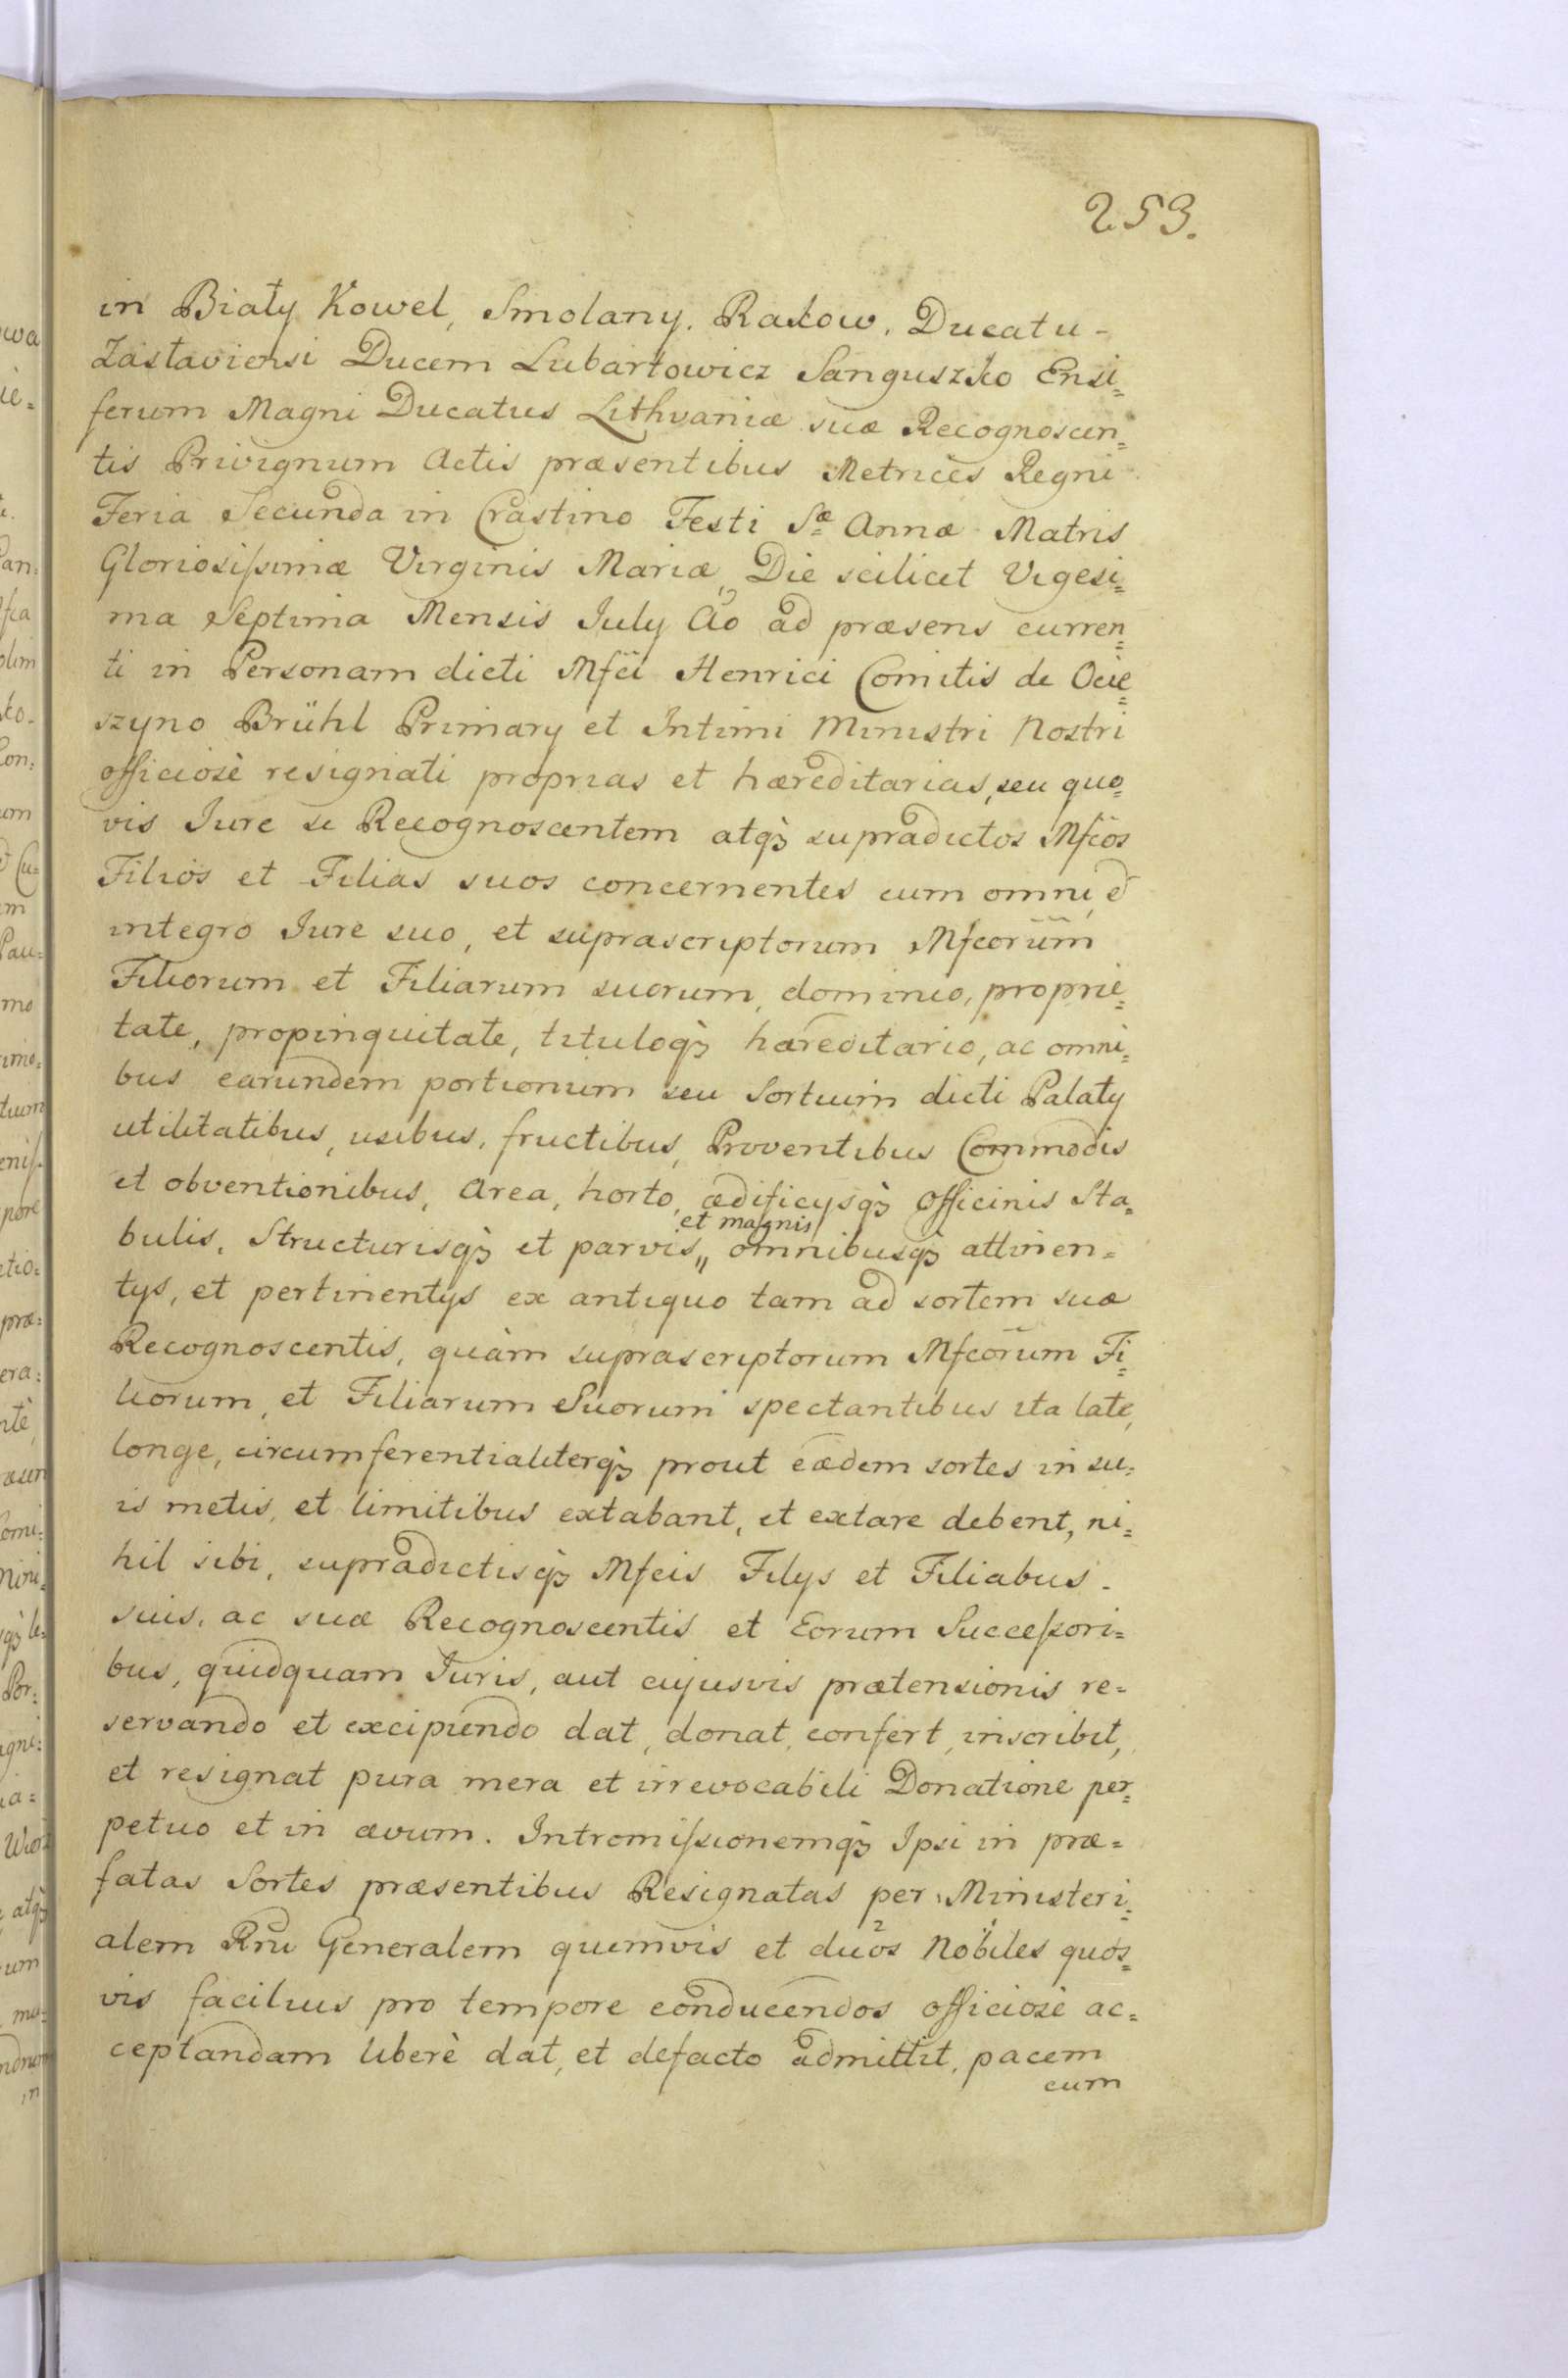 253.
in Biały Kowel, Smolany. Rakow. Ducatu-
Zastaviensi Ducem Lubartowicz Sanguszko Ensi=
ferum Magni Ducatus Lithvaniæ suæ Recognoscen=
tis Privignum Actis præsentibus Metrices Regni
Feria Secunda in Crastino Festi Sæ Annæ Matris
Gloriosissimæ Virginis Mariæ, Die scilicet Vigesi=
ma Septima Mensis July Ao ad præsens curren=
ti in Personam dicti Mfci Henrici Comitis de Ocie=
szyno Brühl Primary et Intimi Ministri Nostri
officiosè resignati proprias et hæreditarias, seu quo=
vis Jure se Recognoscentem atq3 supradictos Mfcos
Filios et Filias suos concernentes cum omni, et
integro Jure suo, et suprascriptorum Mfcorum
Filiorum et Filiarum suorum, dominio, proprie=
tate, propinquitate, tituloq3 hæreditario, ac omni=
bus earundem portionum seu Sortium dicti Palaty
utilitatibus, usibus, fructibus, Proventibus Commodis
et obventionibus, Area, horto, ædificysq3 Officinis Sta=
et magnis
bulis, Structurisq3 et parvis,, omnibusq3 attinen=
tys, et pertinentys ex antiquo tam ad sortem suæ
Recognoscentis, quàm suprascriptorum Mfcorum Fi=
liorum, et Filiarum Suorum spectantibus ita late,
longe, circumferentialiterq3 prout eædem sortes in su=
is metis, et limitibus extabant, et extare debent, ni=
hil sibi, supradictisq3 Mfcis Filys et Filiabus-
suis, ac suæ Recognoscentis et Eorum Successori=
bus, quidquam Juris, aut cujusvis prætensionis re=
servando et excipiendo dat, donat, confert, inscribit,
et resignat pura mera et irrevocabili Donatione per=
petuo et in ævum. Intromissionemq3 Ipsi in præ=
fatas Sortes præsentibus Resignatas per Ministeri=
alem Rni Generalem quemvis et duos Nobiles quos=
vis facilius pro tempore conducendos officiosè ac=
ceptandam liberè dat, et defacto admittit, pacem
cum